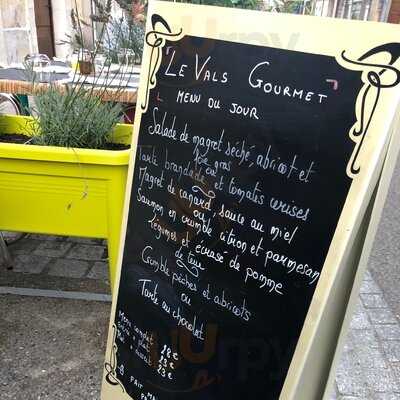 Le Vals Gourmet
Menu du jour
Salade de magret séché, abricot et
foie gras
ou
Tarte brandade et tomates cerises
Magret de canard, sauce au miel
ou
Saumon en crumble citron et parmesan
Légumes et écrasé de pomme
de terre
Crumble pêches et abricots
ou
Tarte au chocolat
Menu complet 28€
Entrée + plat 23€
Plat + dessert 23€
FAIT MAI